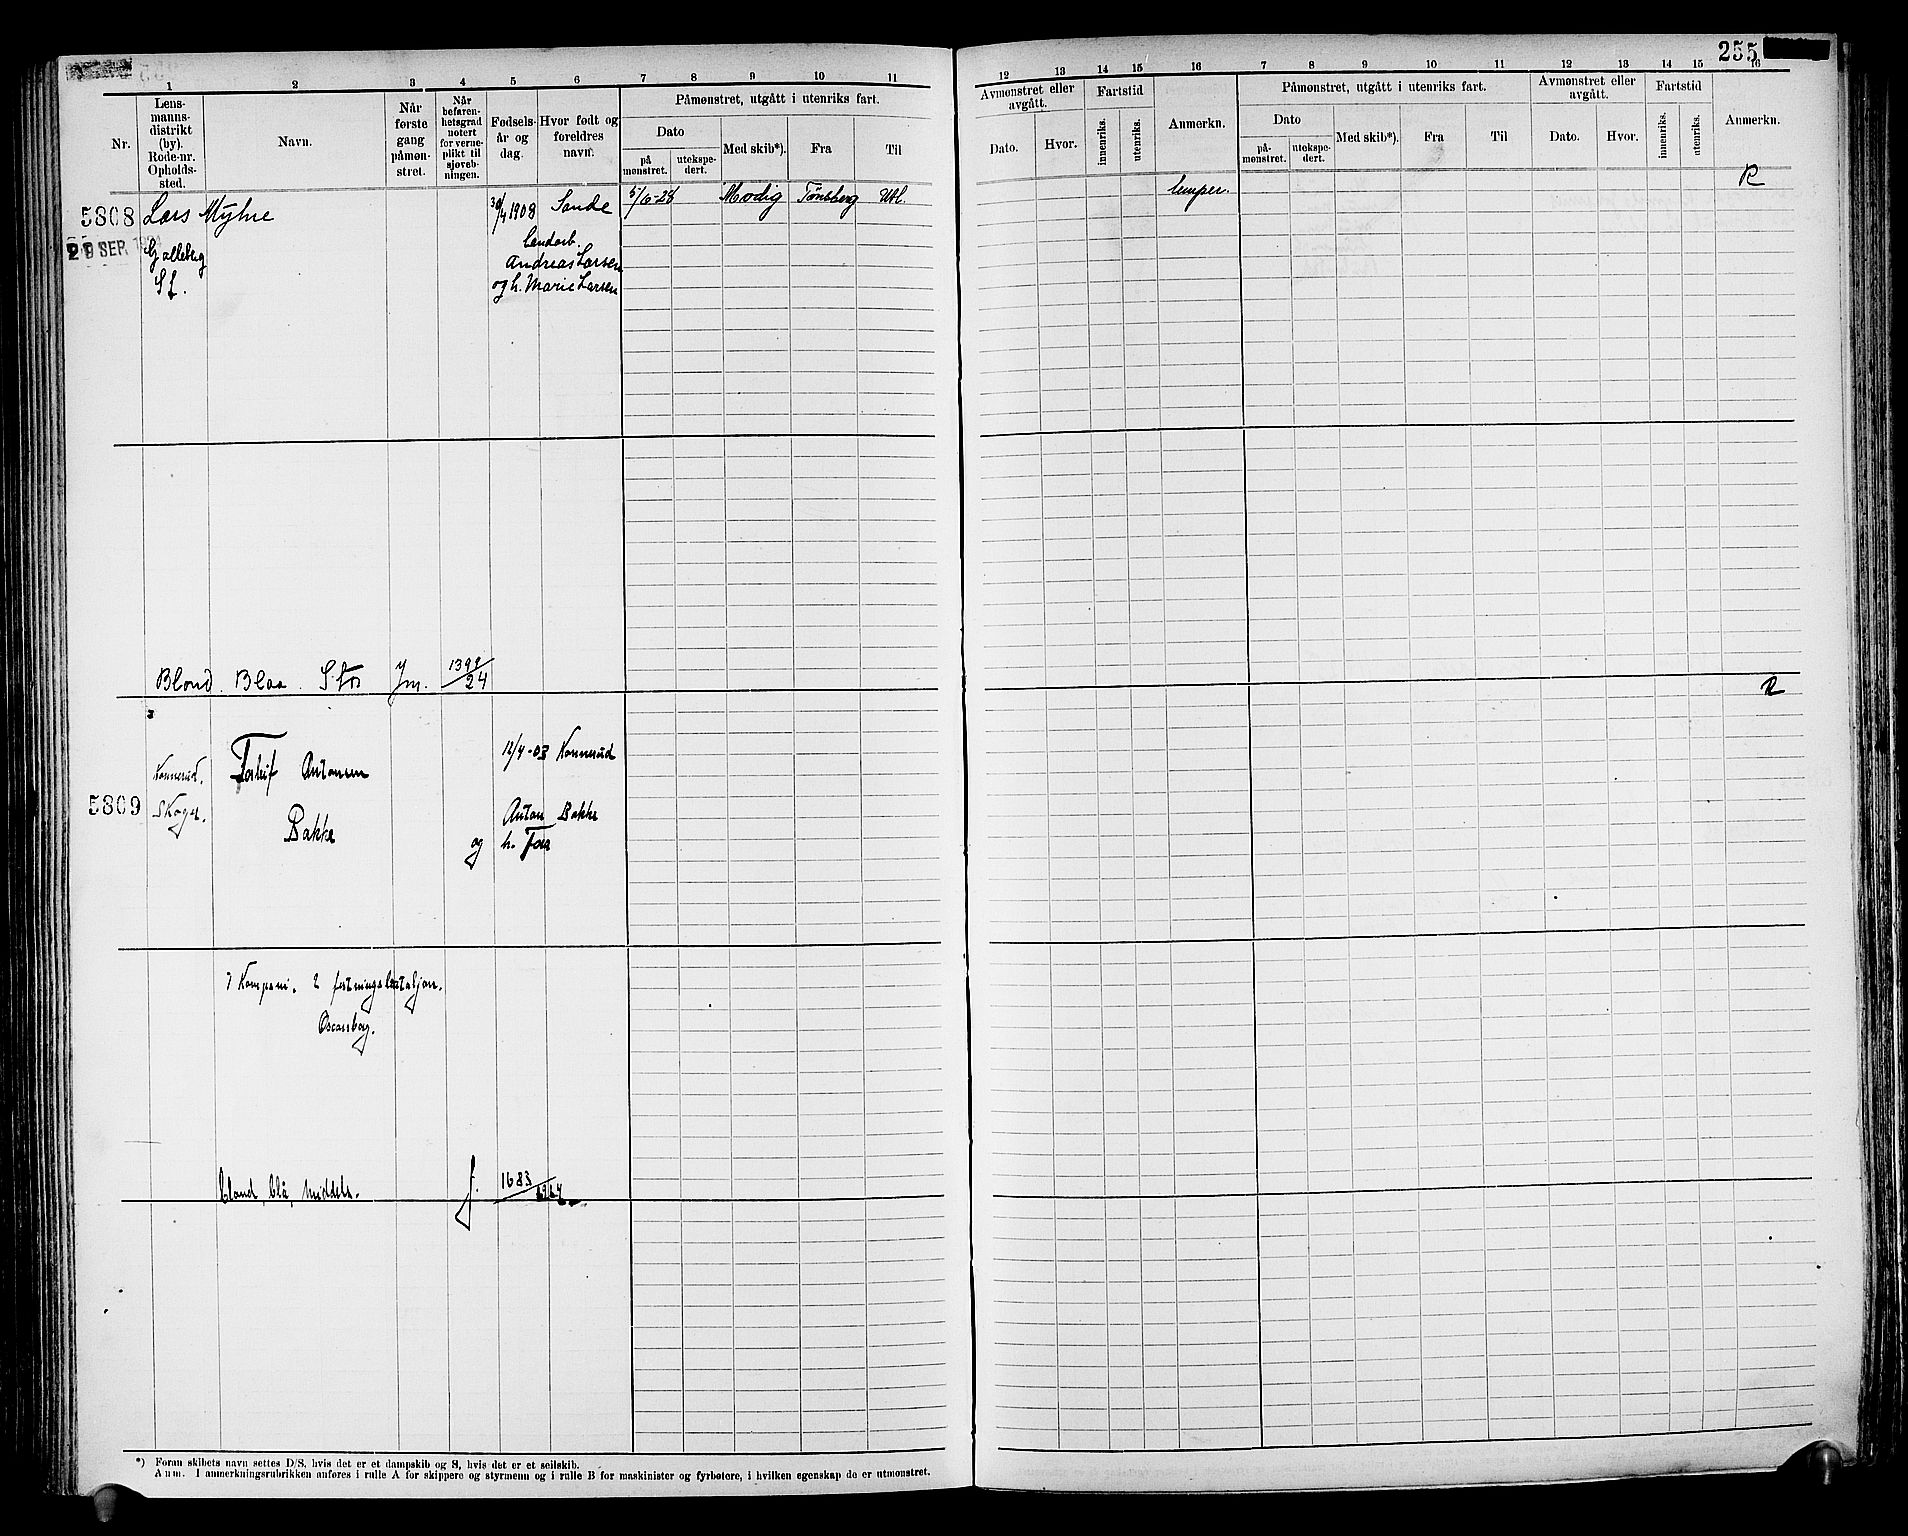 255
1 2 3 4 5 6 7 8 9 10 11
12 13 14 15 16 7 8 9 10 11 12 13 14 15 16
Nr.
Lens-
manns-
distrikt
(by).
Rode-nr.
Opholds-
sted.
Navn.
Når
første
gang
påmøn-
stret.
Når
befaren-
hetsgrad
notert
for verne-
plikt til
sjøveb-
ningen.
Fødsels-
år og
dag.
Hvor født og
foreldres
navn.
Påmønstret, utgått i utenriks fart.
Dato
på
mønstret.
utekspe-
dert.
Med skib*).
Fra
Til
Avmønstret eller
avgått.
Dato.
Hvor.
Fartstid
innenriks.
utenriks.
Anmerkn.
Påmønstret, utgått i utenriks fart.
Dato
på-
mønstret.
utekspe-
dert.
Med skib*).
Fra
Til
Avmønstret eller
avgått.
Dato.
Hvor.
Fartstid
innenriks.
utenriks.
Anmerkn.
5808 Lars Myhre 30/4 1908 Sande 5/6-28 Modig Tønsberg Utl. lemper. R
SEP. Galleberg landarb.
Andreas Larsen
S.L. og h. Marie Larsen
Blond. Blaa. Stor Jm. 24
R
12/4-03 Konnerud
Konnerud. Antonsen
5809 Skoger. Anton Bakke
Bakke og h. Tora
7 Kompani. 2 festningsbataljon.
Oscarsborg.
blond, blå, middels. f. 1683
1924
*) Foran skibets navn settes D/S, hvis det er et dampskib og S, hvis det er et seilskib.
Anm. I anmerkningsrubrikken anføres i rulle A for skippere og styrmenn og i rulle B for maskinister og fyrbøtere, i hvilken egenskap de er utmønstret.